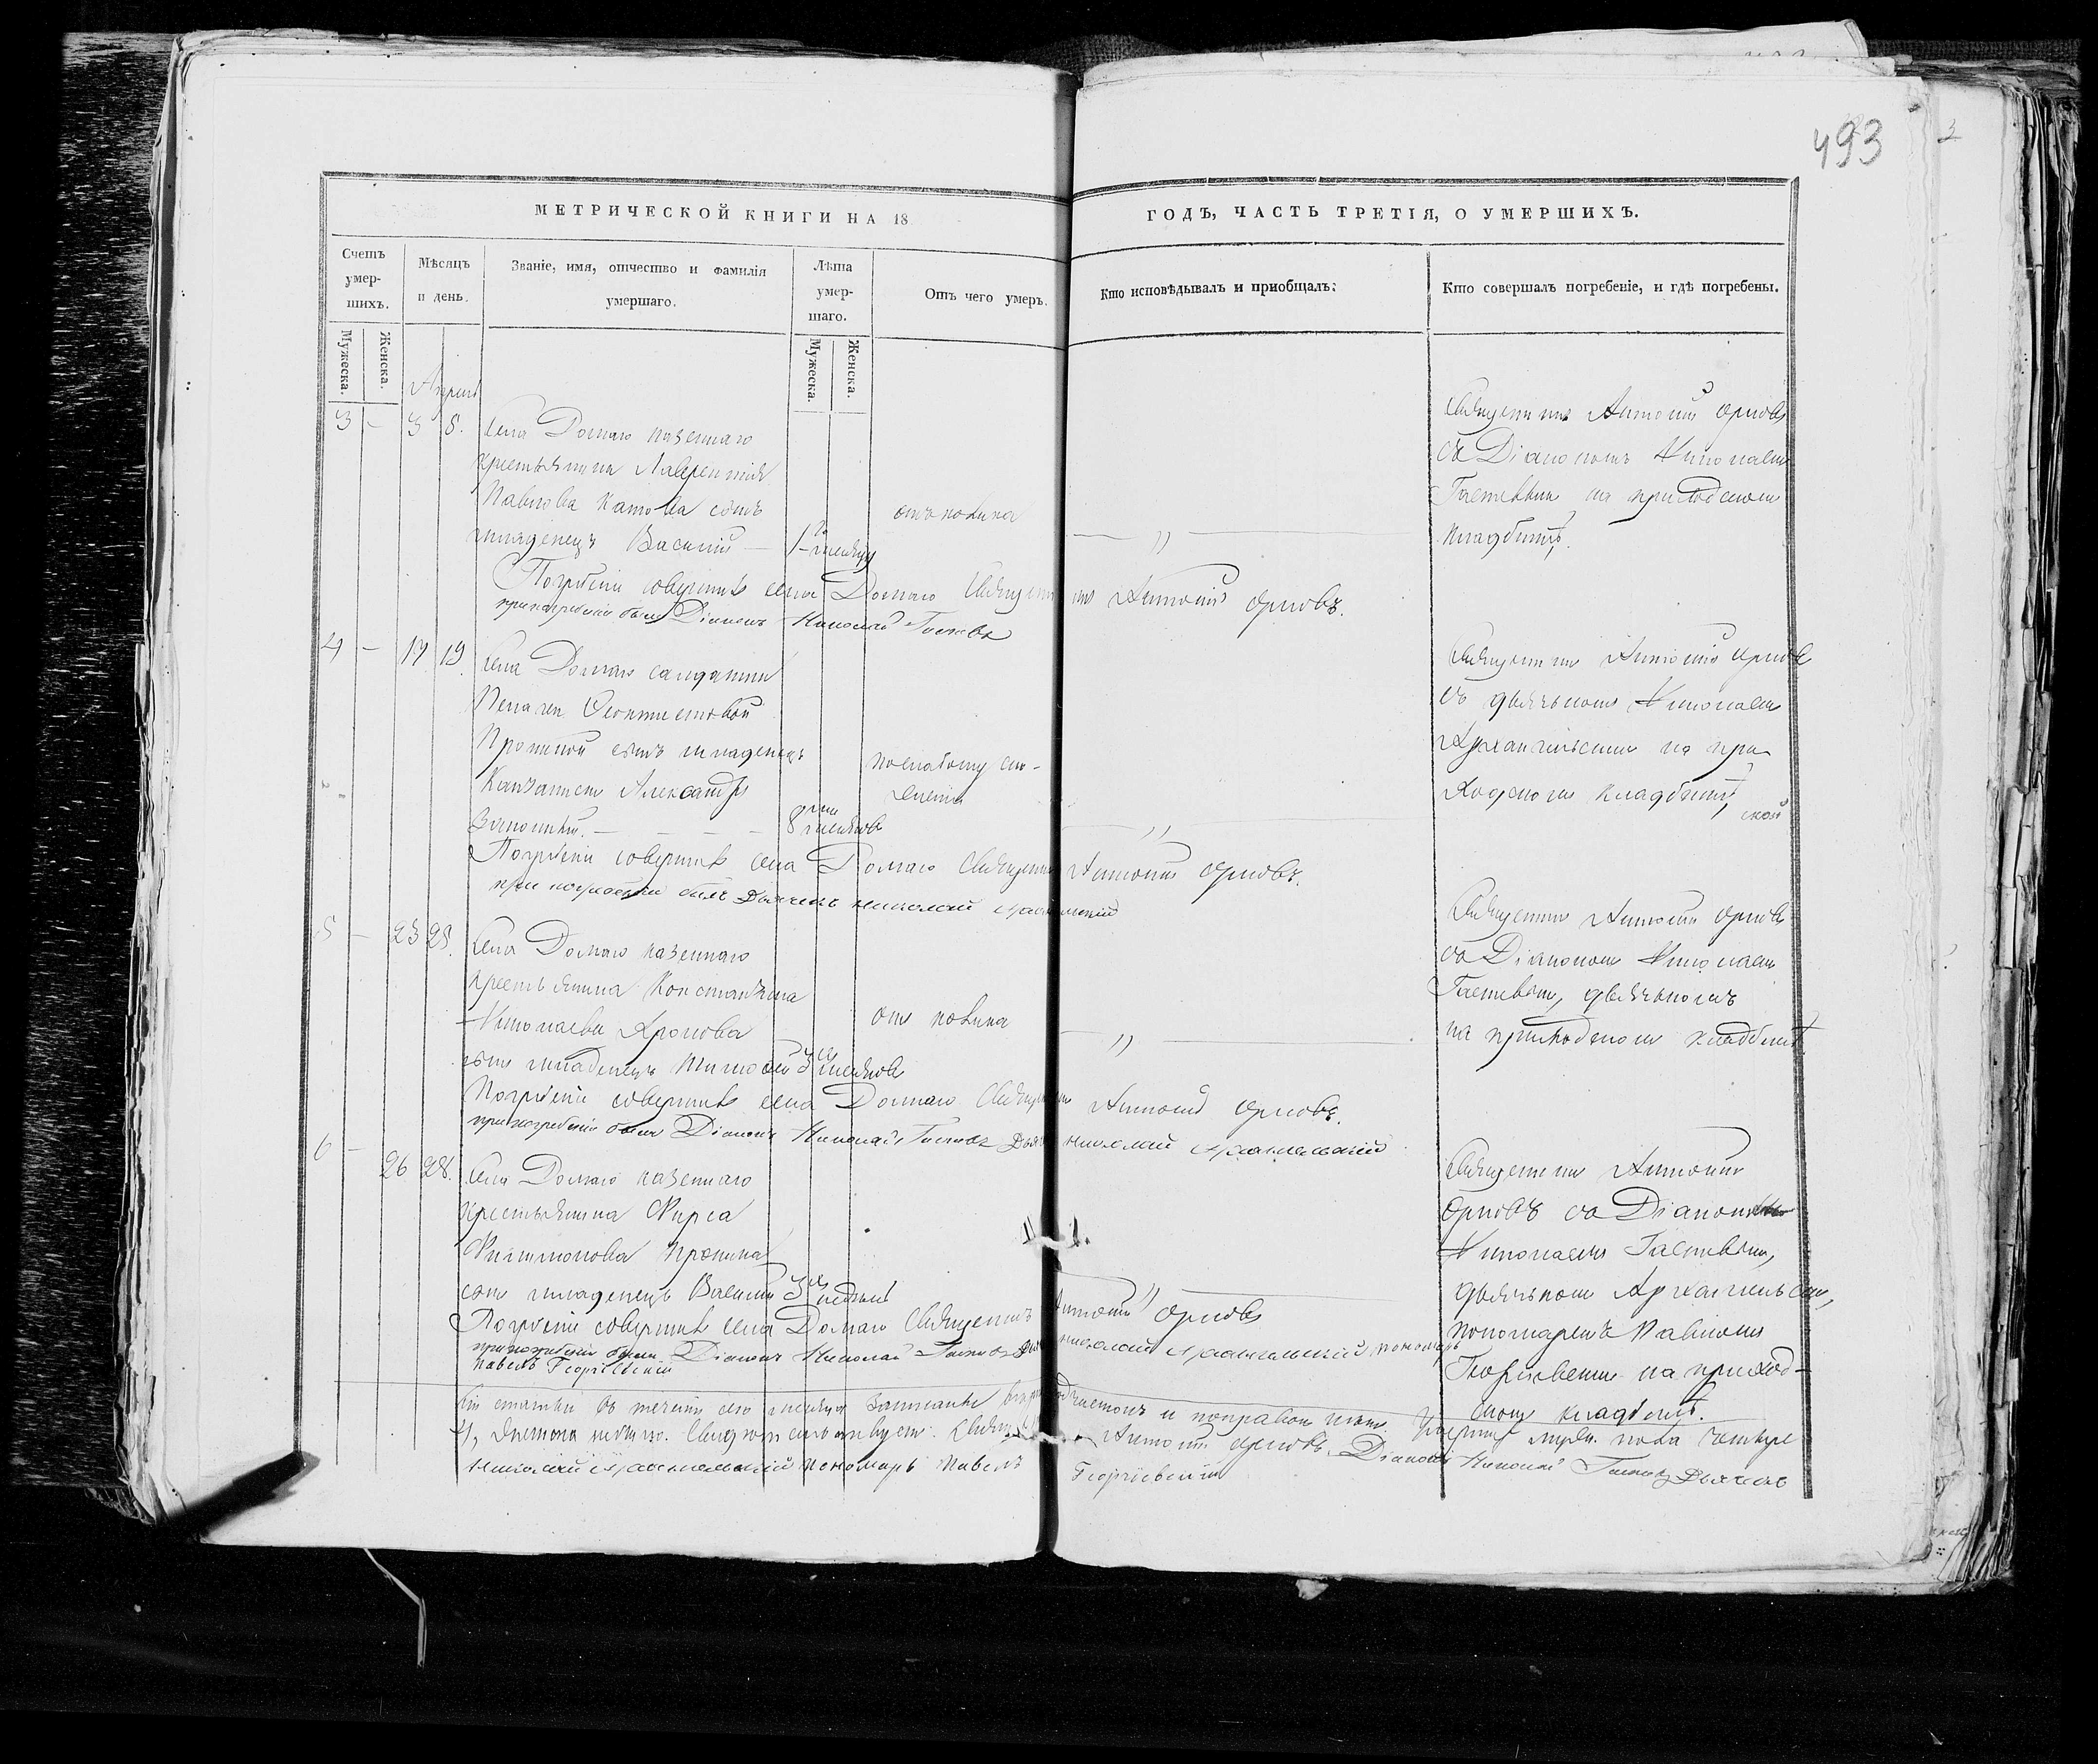 493
МЕТРИЧЕСКОЙ КНИГИ НА 18
ГОДЪ, ЧАСТЬ ТРЕТІЯ, О УМЕРШИХЪ.
Счетъ умер-шихъ.
Мѣсяцъ и день.
Званіе, имя, отчество и фамилія умершаго.
Лѣта умер-шаго.
Отъ чего умеръ.
Кто исповѣдывалъ и пріобщалъ:
Кто совершалъ погребеніе, и гдѣ погребены.
Мужеска.
Женска.
Мужеска.
Женска.
Апрѣль
3 – 3 5. Села Долгаго казеннаго
крестьянина Лаврентія
Павлова Катова сынъ
младенецъ Василій – 1 месяцу
отъ поноса
„
Священникъ Антоній Орловъ
съ Діакономъ Николаемъ
Гастевымъ на приходскомъ
кладбищѣ.
Погребеніе совершилъ села Долгаго Священникъ Антоній Орловъ.
при погребеніи былъ Діаконъ Николай Гастевъ
4 – 17 19. Села Долгаго салдатки
Пелагеи
Прониной сынъ младенецъ
Александръ
8 месяцовъ
„
Священникъ Антоній Орловъ
съ дьячкомъ Николаемъ
Архангельскимъ на при-
ходскомъ кладбищѣ
Погребеніе совершилъ села Долгаго Священникъ Антоній Орловъ.
при погребеніи былъ Дьячекъ Николай Архангельскій
5 – 23 25. Села Долгаго казеннаго
крестьянина Константина
Николаева
сынъ младенецъ Тимофей 3 месяцовъ
отъ поноса
„
Священникъ Антоній Орловъ
съ Діакономъ Николаемъ
Гастевымъ, дьячькомъ
на приходскомъ кладбищѣ
Погребеніе совершилъ села Долгаго Священникъ Антоній Орловъ.
при погребеніи были Діаконъ Николай Гастевъ Дьячекъ Николай Архангельскій
6 – 26 28. Села Долгаго казеннаго
крестьянина Фирса
Филимонова Пронина
сынъ младенецъ Василій 3 недѣль
„
Священникъ Антоній
Орловъ съ Діакономъ
Николаемъ Гастевымъ,
дьячькомъ Архангельскимъ,
пономаремъ Павломъ
Георгіевскимъ на приход-
скомъ кладбищѣ.
Погребеніе совершилъ села Долгаго Священникъ Антоній Орловъ
при погребеніи были Діаконъ Николай Гастевъ Дьячекъ Николай Архангельскій пономарь
Павелъ Георгіевскій
статьи въ теченіи сего месяца записаны и поправокъ нѣтъ. Умершихъ мужеска пола четыре
4, женска Свидѣтельствуетъ Священникъ Антоній Орловъ. Діаконъ Николай Гастевъ Дьячекъ
Николай Архангельскій пономарь Павелъ Георгіевскій